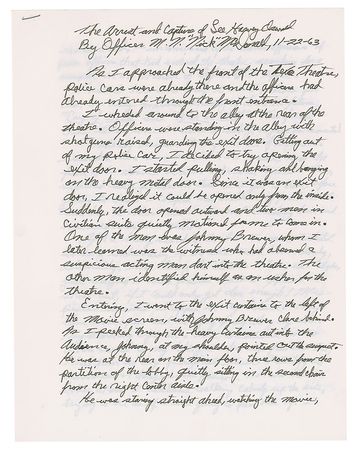 The Arrest and Capture of Lee Harvey Oswald
By Officer M. N. "Nick" McDonald, 11-22-63
As I approached the front of the Texas Theatre,
Police Cars were already there and the officers had
already entered through the front entrance.
I wheeled around to the alley at the rear of the
theatre. Officers were standing in the alley with
shotguns raised, guarding the exit door. Getting out
of my police car, I decided to try opening the
exit door. I started pulling, shaking and banging
on the heavy metal door. Since it was an exit
door, I realized it could be opened only from the inside.
Suddenly, the door opened outward and two men in
Civilian suits quietly motioned from to come in.
One of the men was Johnny Brewer, whom I
later learned was the citizen who had observed a
suspicious acting man dart into the theatre. The
other man identified himself as an usher for the
theatre.
Entering, I went to the exit curtains to the left of
the Movie screen, with Johnny Brewer close behind.
As I peeked through the heavy curtains out into the
Audience, Johnny, at my shoulder, pointed out the suspect.
He was at the Rear on the main floor, three rows from the
partition of the lobby, quietly sitting in the second chair
from the right Center aisle.
He was staring straight ahead, watching the movie,